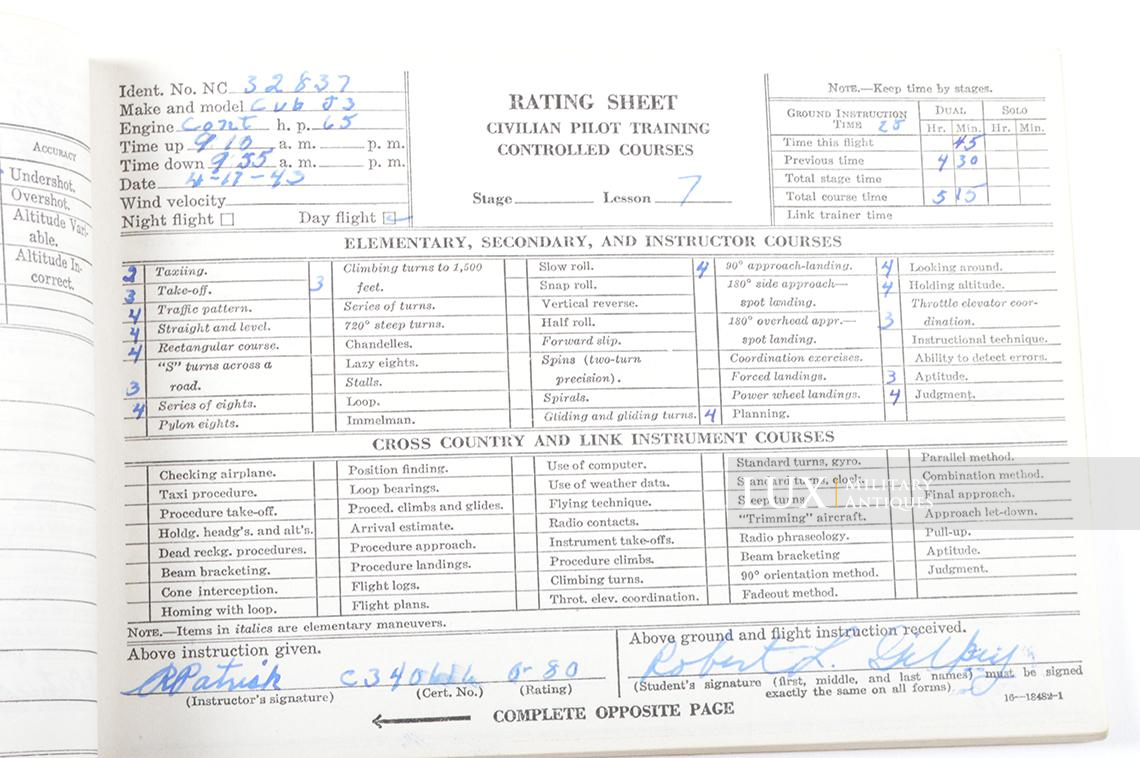 ACCURACY
Undershot.
Overshot.
Altitude Vari-
able.
Altitude In-
correct.
Ident. No. NC 32837
Make and model Cub J3
Engine Cont h. p. 65
Time up 9 10 a. m. p. m.
Time down 9 55 a. m. p. m.
Date 4-17-43
Wind velocity
Night flight Day flight
RATING SHEET
CIVILIAN PILOT TRAINING
CONTROLLED COURSES
Stage Lesson 7
NOTE.—Keep time by stages.
GROUND INSTRUCTION TIME 25
DUAL SOLO
Hr. Min. Hr. Min.
Time this flight 45
Previous time 4 30
Total stage time
Total course time 5 15
Link trainer time
ELEMENTARY, SECONDARY, AND INSTRUCTOR COURSES
Taxiing.
3 Take-off.
4 Traffic pattern.
4 Straight and level.
4 Rectangular course.
"S" turns across a
3 road.
4 Series of eights.
Pylon eights.
Climbing turns to 1,500
3 feet.
Series of turns.
720° steep turns.
Chandelles.
Lazy eights.
Stalls.
Loop.
Immelman.
Slow roll.
Snap roll.
Vertical reverse.
Half roll.
Forward slip.
Spins (two-turn
precision).
Spirals.
Gliding and gliding turns.
4 90° approach-landing.
180° side approach—
spot landing.
180° overhead appr.—
spot landing.
Coordination exercises.
Forced landings.
Power wheel landings.
4 Planning.
4 Looking around.
4 Holding altitude.
Throttle elevator coor-
3 dination.
Instructional technique.
Ability to detect errors.
3 Aptitude.
4 Judgment.
CROSS COUNTRY AND LINK INSTRUMENT COURSES
Checking airplane.
Taxi procedure.
Procedure take-off.
Holdg. headg's. and alt's.
Dead reckg. procedures.
Beam bracketing.
Cone interception.
Homing with loop.
Position finding.
Loop bearings.
Proced. climbs and glides.
Arrival estimate.
Procedure approach.
Procedure landings.
Flight logs.
Flight plans.
Use of computer.
Use of weather data.
Flying technique.
Radio contacts.
Instrument take-offs.
Procedure climbs.
Climbing turns.
Throt. elev. coordination.
Standard turns, gyro.
Standard turns, clock.
Steep turns.
"Trimming" aircraft.
Radio phraseology.
Beam bracketing
90° orientation method.
Fadeout method.
Parallel method.
Combination method.
Final approach.
Approach let-down.
Pull-up.
Aptitude.
Judgment.
LUX MILITARY ANTIQUES
NOTE.—Items in italics are elementary maneuvers.
Above instruction given.
R Patrick
(Instructor's signature) (Cert. No.) (Rating)
Above ground and flight instruction received.
Robert L.
(Student's signature (first, middle, and last names) must be signed
exactly the same on all forms)
16—18482-1
COMPLETE OPPOSITE PAGE